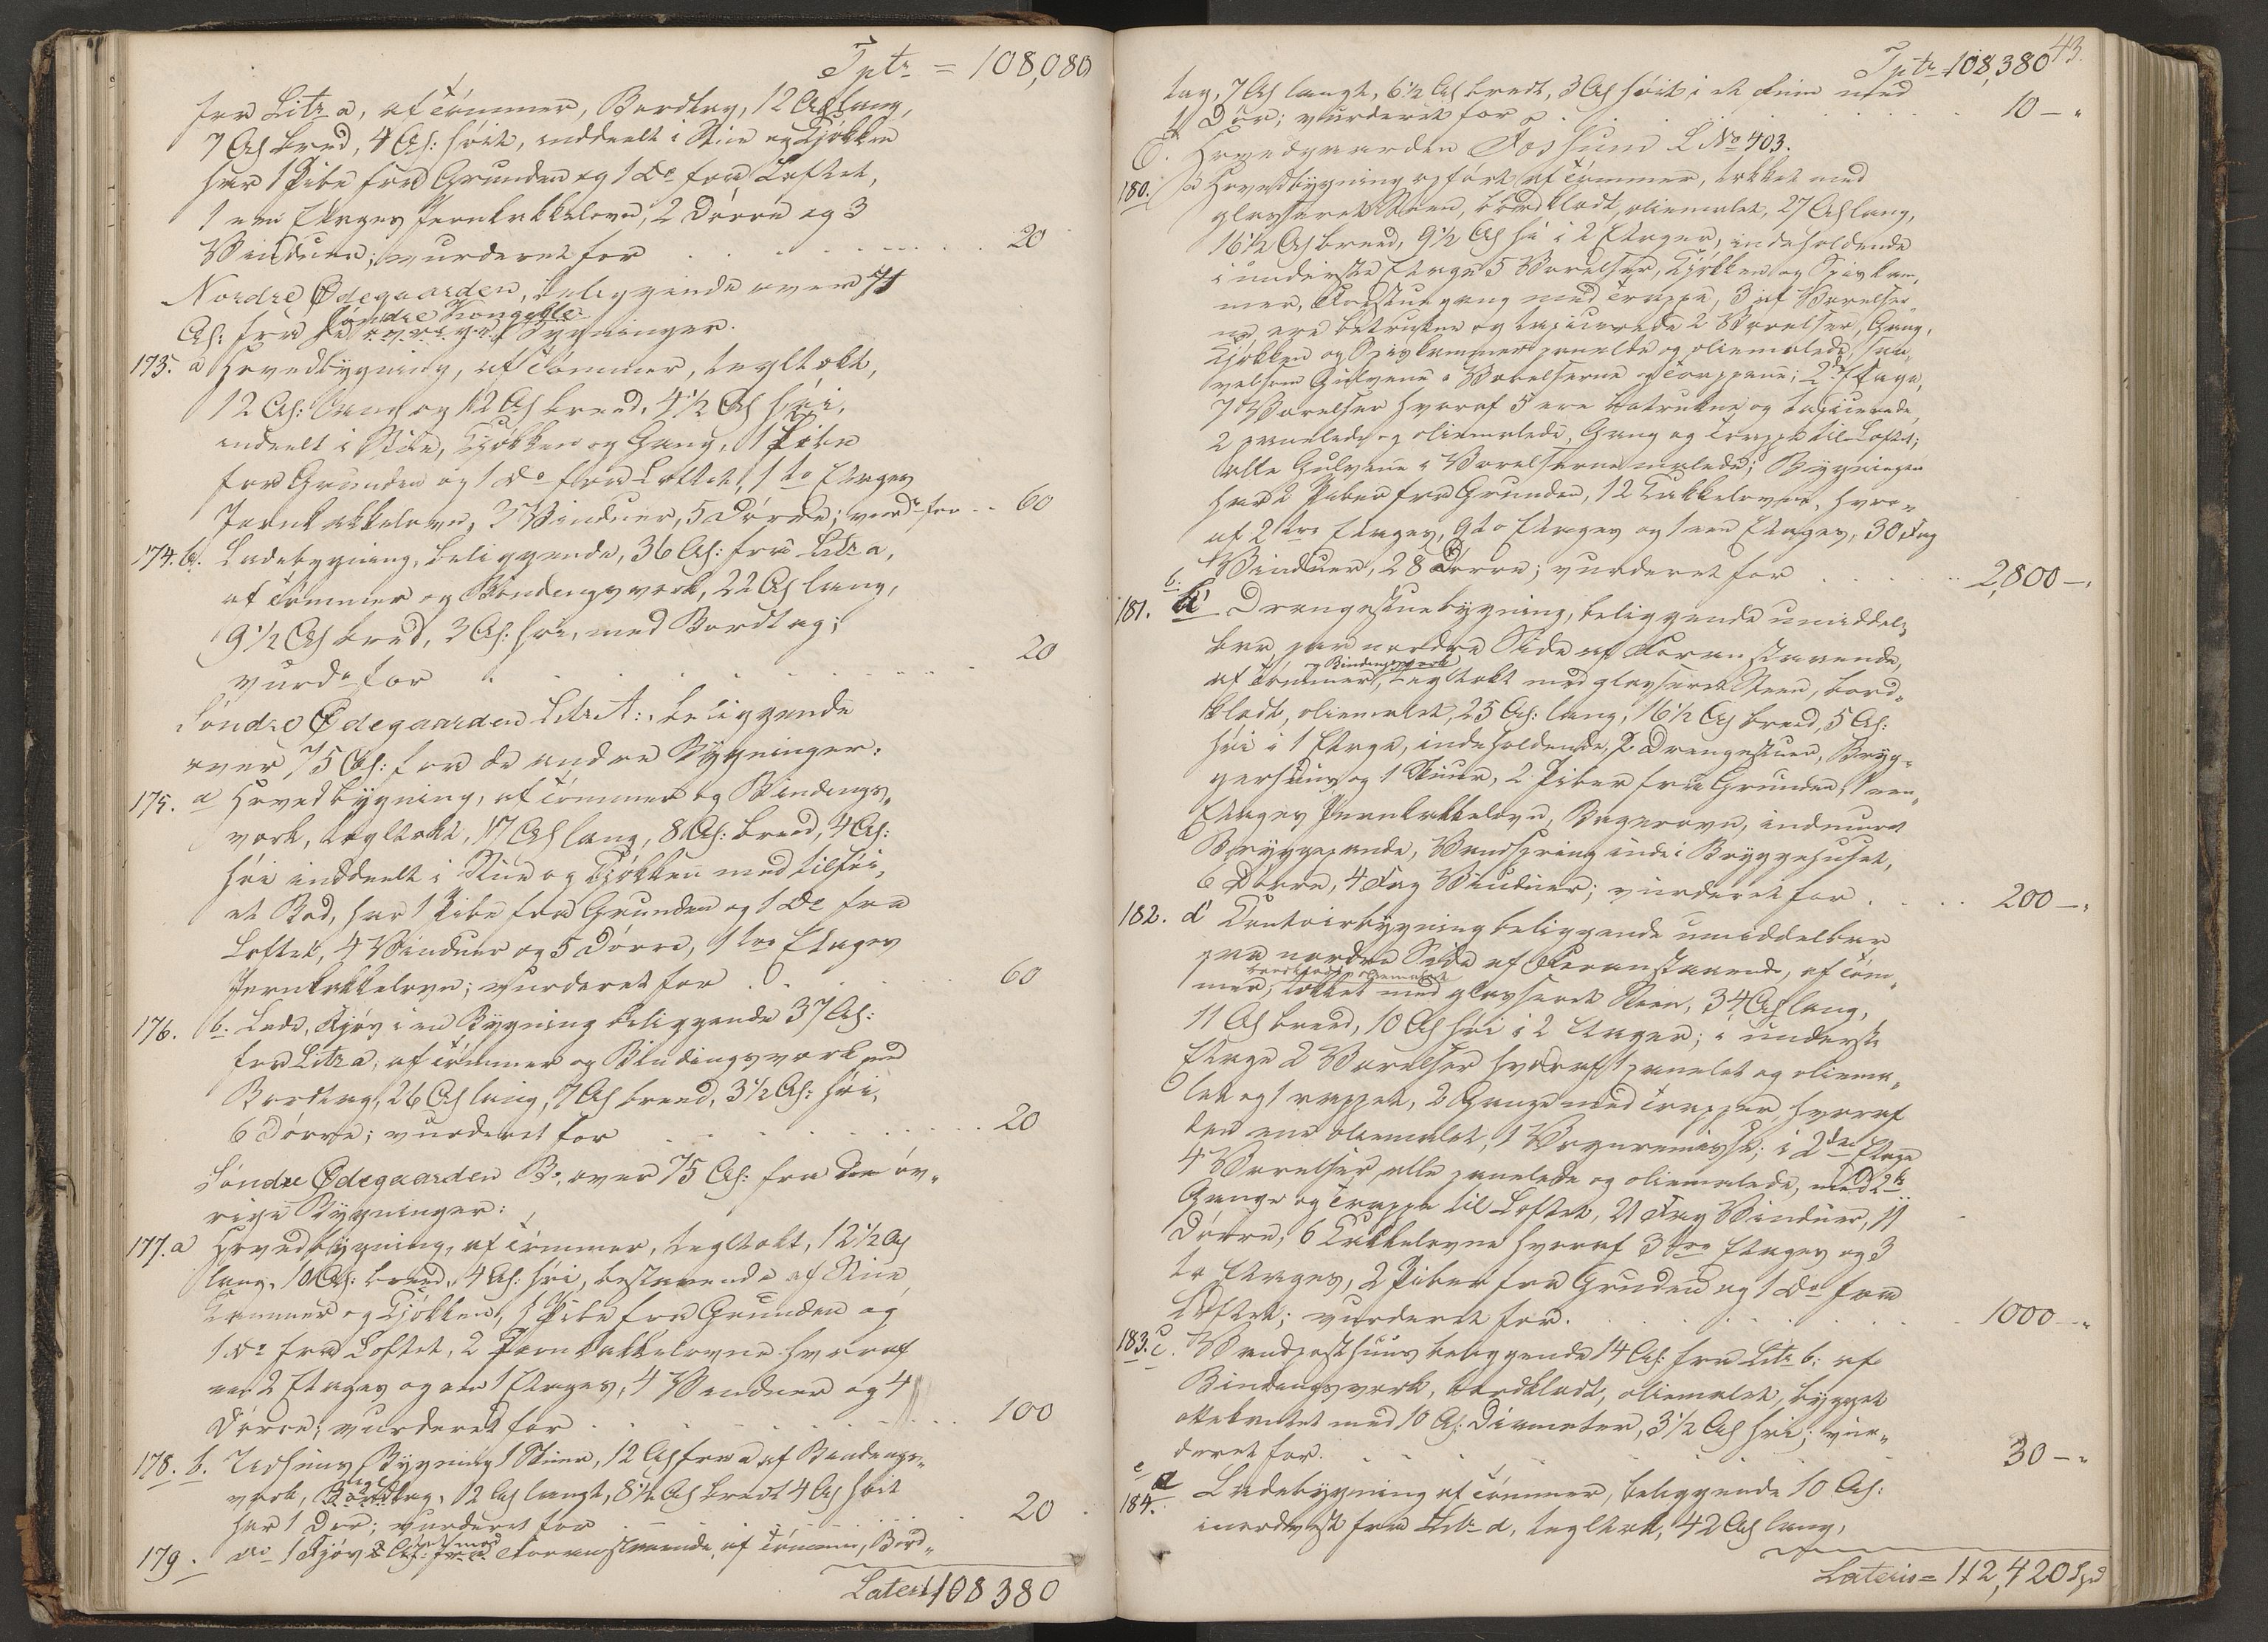 Tptr = 108,080
fra Litr a, af Tømmer, Bordtag, 12 Al lang,
7 Al bred, 4 Al: höit, inddeelt i Stue og Kjøkken
har 1 Pibe fra Grunden og 1 Do fra Loftet,
1 een Etages Jernkakkelovn, 2 Dörre og 3
Vinduer; vurderet for . . . . 20
Nordre Ödegaarden, beliggende over 75
Al: fra de övrige Bygninger.
173. a Hovedbygning, af Tømmer, tegltækt,
12 Al: lang og 12 Al breed, 4 1/2 Al höi,
indeelt i Stue, Kjøkken og Gang, 1 Pibe
fra Grunden og 1 Do fra Loftet, 1 to Etages
Jernkakkelovn, 3 Vinduer, 5 Dörre; vurdr for . . 60
174. b. Ladebygning, beliggende, 36 Al: fra Litr a,
af Tømmer og Bindingsværk, 22 Al lang,
9 1/2 Al bred, 3 Al: höi, med Bordtag;
vurdr for . . . . 20
Söndre Ödegaarden Litr A:, beliggende
over 75 Al: fra de andre Bygninger:
175. a Hovedbygning, af Tømmer og Bindings„
værk, tegltækt, 17 Al lang, 8 Al: breed, 4 Al:
höi inddeelt i Stue og Kjøkken med tilhöi„
et Bod, har 1 Pibe fra Grunden og 1 Do fra
Loftet, 4 Vinduer og 5 Dörre, 1 tre Etages
Jernkakkelovn; vurderet for . . . 60
176. b. Lade, Fjøs i en Bygning beliggende 37 Al:
fra Litr a, af Tømmer og Bindingsværk med
Bordtag, 26 Al lang, 7 Al breed, 3 1/2 Al: höi,
6 Dörre; vurderet for . . . . 20
Söndre Ödegaarden B., over 75 Al: fra de öv„
rige Bygninger:
177. a Hovedbygning, af Tømmer, tegltækt, 12 1/2 Al
lang, 10 Al: breed, 4 Al: höi, bestaaende af Stue,
Kammer og Kjøkken, 1 Pibe fra Grunden og
1 Do fra Loftet, 2 Jernkakkelovne hvoraf
een 2 Etages og een 1 Etages, 4 Vinduer og 4
Dörre; vurderet for . . . . 100
178. b. Udhuus Bygning 1 Skuur, 12 Al fra a af Bindings„
værk, Bordtag, 12 Al langt, 8 1/2 Al bredt 4 Al höit
har 1 Dør; vurderet for . . . . 20
179. do 1 Fjøs Foranstaaende, af Tømmer, Bord„
Lateris 108 380
43.
Tptr 108,380
tag, 7 Al langt, 6 1/2 Al bredt, 3 Al höit i et Rum med
1 Dör; vurderet for . . . . 10 – „
C. Hovedgaarden Fossum L No 403.
180. a Hovedbygning opfört af Tømmer, tækket med
glasseret Steen, bordklædt, oliemalet, 27 Al lang,
16 1/2 Al breed, 9 1/2 Al höi i 2 Etager, indeholdende
i underste Etage 5 Værelser, Kjøkken og Spiskam„
mer, Forstuegang med Trappe, 3 af Værelser„
ne ere betrukne og tapicerede 2 Værelser, Gang,
Kjøkken og Spiskammer panelede og oliemalede, saa„
velsom Gulvene i Værelserne og Trappene; 2den Etage,
7 Værelser hvoraf 5 ere betrukne og tapicerede,
2 panelede og oliemalede, Gang og Trappe til Loftet;
alle Gulvene i Værelserne malede; Bygningen
har 2 Piber fra Grunden, 12 Kakkelovne, hvor„
af 2 tre Etages, 9 to Etages og 1 een Etages, 30 Fag
Vinduer, 28 Dörre; vurderet for . . . 2,800 – „
181. b. Drengestuebygning, beliggende umiddel„
bar paa nordre Side af Foranstaaende,
og Bindingsværk
af Tømmer, tegltækt med glasseret Steen, bord„
klædt, oliemalet, 25 Al: lang, 16 1/2 Al breed, 5 Al:
höi i 1 Etage, indeholdende, 2 Drengestuer, Bryg„
gerhuus og 1 Skuur, 2 Piber fra Grunden, 1 een
Etages Jernkakkelovn, Bagerovn, indmuret
Bryggepande, Vandspring inde i Bryggehuset,
6 Dörre, 4 Fag Vinduer; vurderet for . . . 200 – „
182. d Contoirbygning beliggende umiddelbar
paa nordre Side af Foranstaaende, af Töm„
bordklædt, oliemalet
mer, tækket med glasseret Steen, 34 Al lang,
11 Al breed, 10 Al höi i 2 Etager; i underste
Etage 2 Værelser hvoraf 1 panelet og oliema„
let og 1 rappet, 2 Gange med Trapper, hvoraf
den ene oliemalet, 1 Vognremisse; i 2den Etage
4 Værelser, alle panelede og oliemalede, med 2de
Gange og Trappe til Loftet, 21 Fag Vinduer, 11
Dörre, 6 Kakkelovne hvoraf 3 tre Etages og 3
to Etages, 2 Piber fra Grunden og 1 Do fra
Loftet; vurderet for . . . . 1000 – „
183. c. Vandposthuus beliggende 14 Al: fra Litr b: af
Bindingsværk, bordklædt, oliemalet, bygget
ottekantet med 10 Al: Diameter, 3 1/2 Al höi; vur„
deret for . . . . 30 – „
184. e Ladebygning af Tømmer, beliggende 10 Al:
i nordvest fra Litr d, tegltækt, 42 Al lang,
Lateris = 112,420 Spd